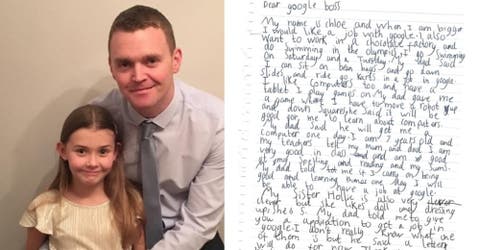 Dear google boss
My name is chloe and when I am bigger
I would like a job with google. I also
want to work in a chocolate factory and
do swimming in the olympics. I go swimming
on Saturday and a Tuesday. My dad said
I can sit on bean bags and go down
slides and ride go karts in a job in google.
I like computers too and have a
tablet I play games on. My dad gave me
a game where I have to move a robot up
and down squares, he said it will be
good for me to learn about computers.
My dad said he will get me a
computer one day. I am 7 years old and
my teachers tell my mum and dad I am
very good in class and am good
at my spelling and reading and my sums.
My dad told me if I carry on being
good and learning then one day I will
be able to have a job at google.
My sister Hollie is also very
clever but she likes doll and dressing
up, she is 5. My dad told me to give
you a application to get a job in
google. I don't really know what one
of them is but he said a letter
will do for now.